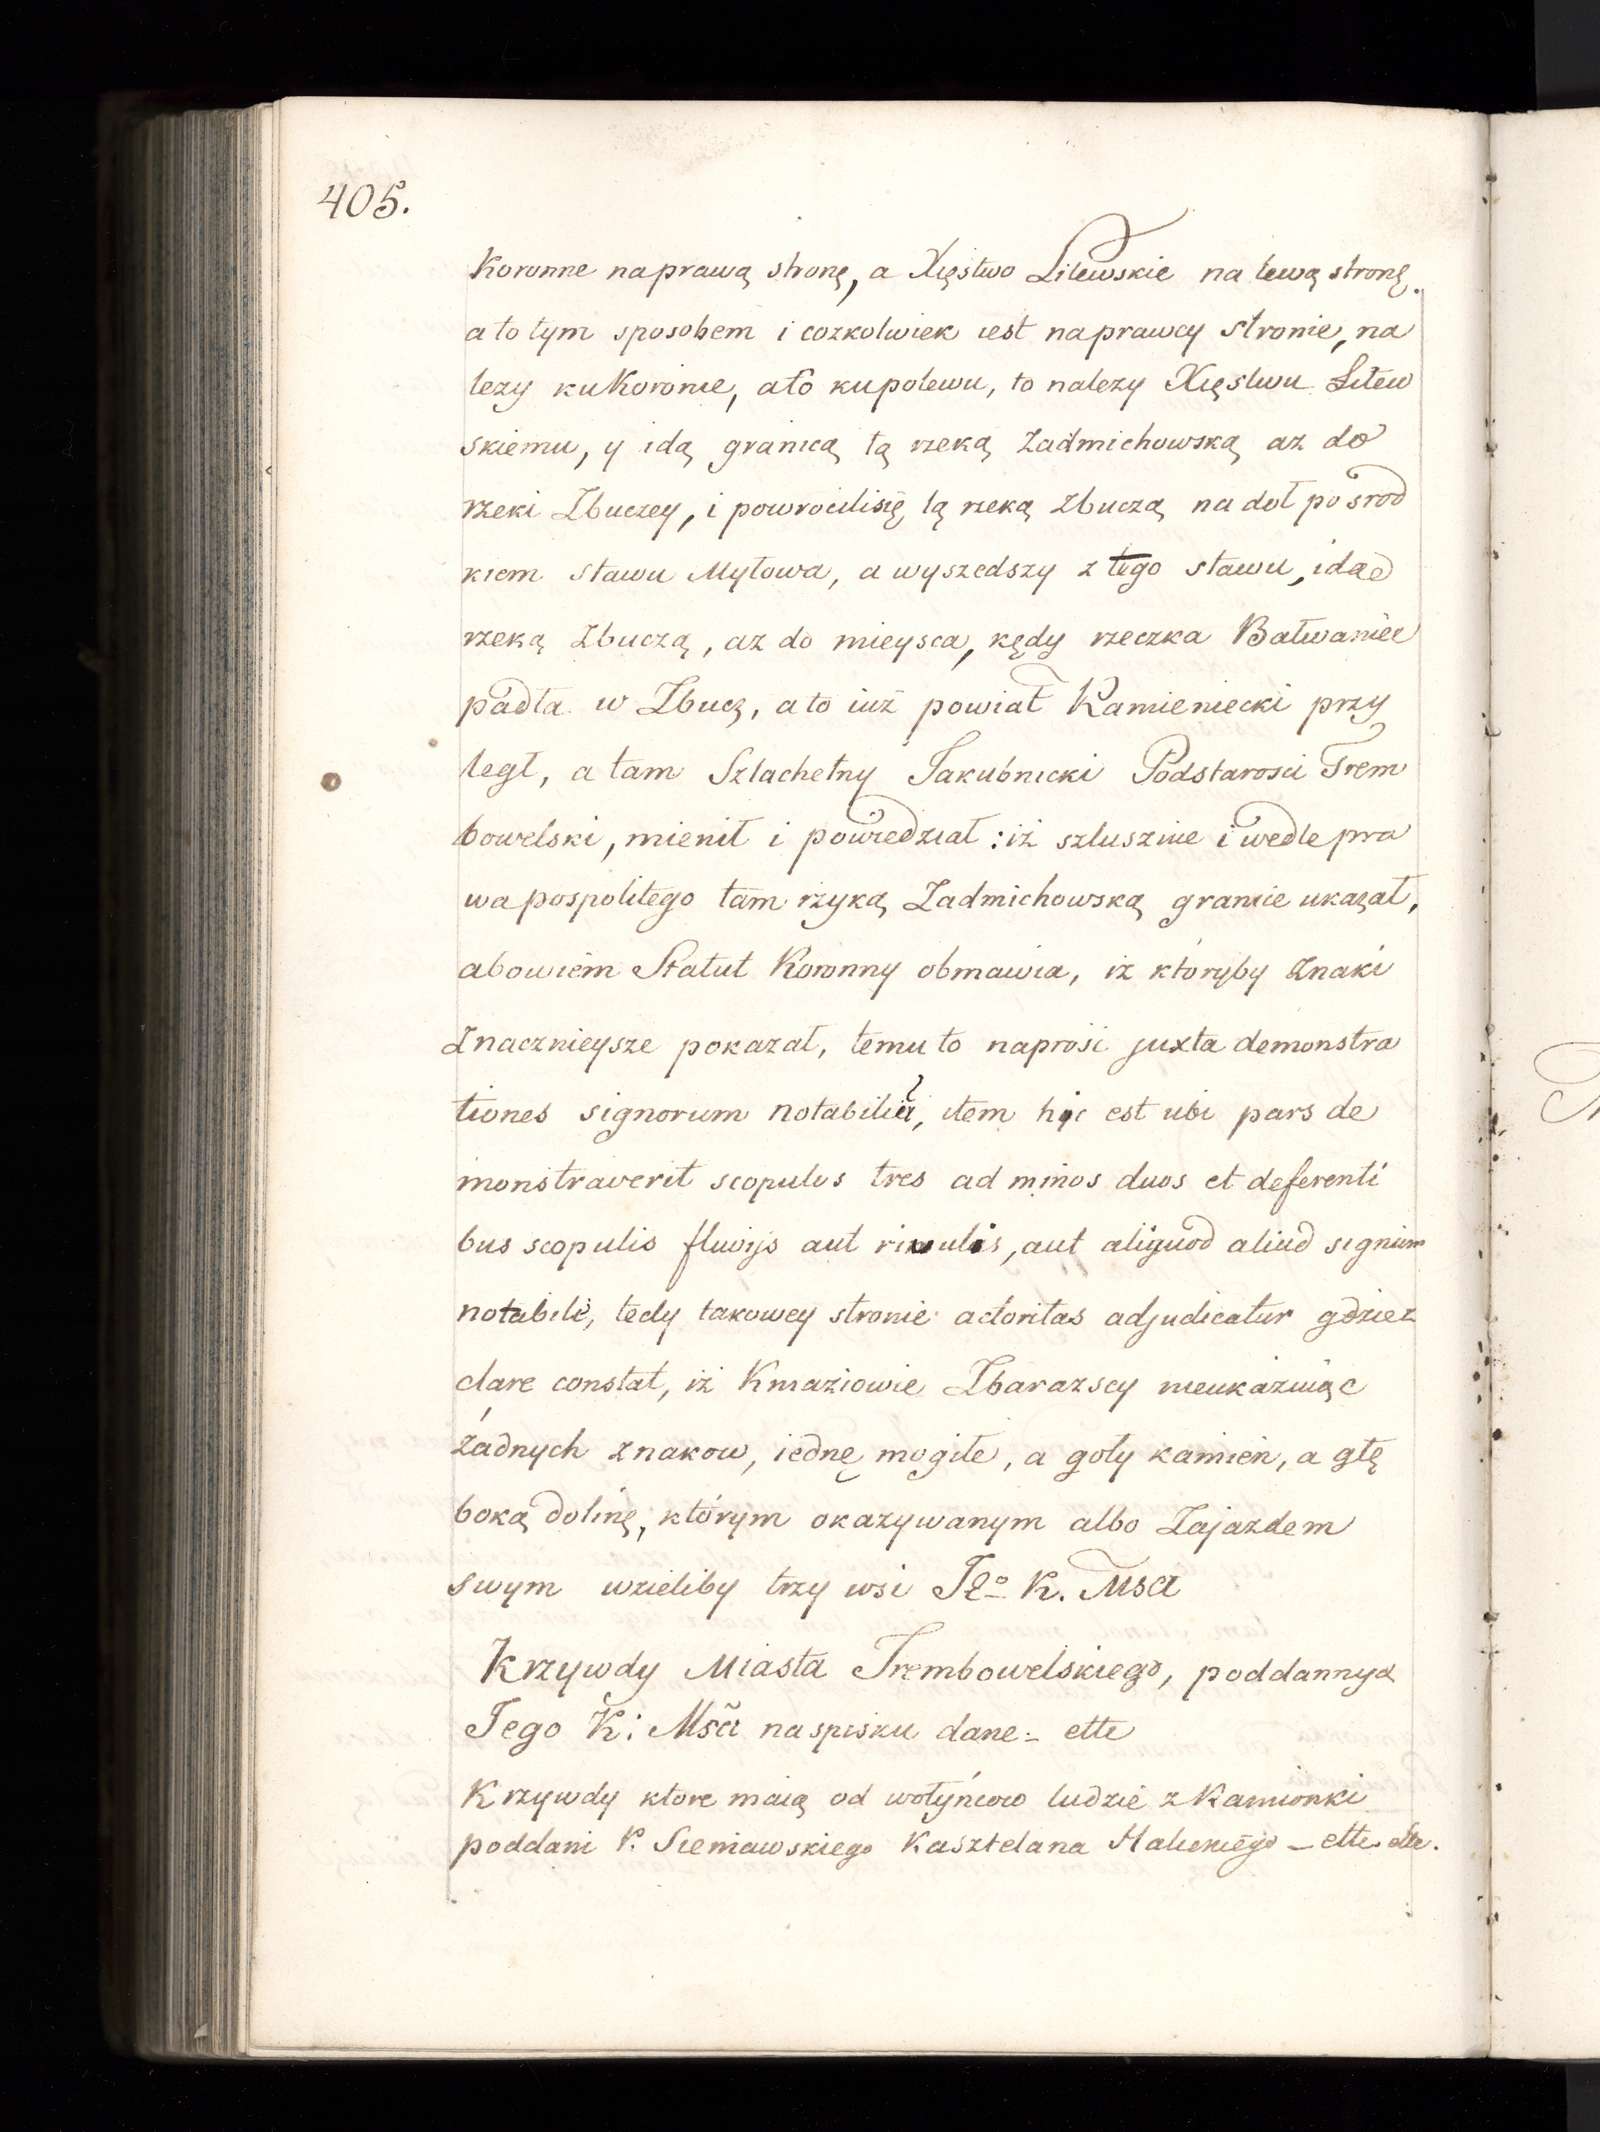 405.
Koronne na prawą stronę, a Xięstwo Litewskie na lewą stronę.
a to tym sposobem i cozkolwiek iest na prawey stronie, na
lezy ku Koronie, a to ku polewu, to nalezy Xięstwu Litew
skiemu, y idą granicą tą rzeką Zadmichowską az do
rzeki Zbuczey, i powrocili się tą rzeką Zbuczą na doł po srod
kiem stawu Mytowa, a wyszedszy z tego stawu, idąc
rzeką Zbuczą, az do mieysca, kędy rzeczka Bałwaniec
padła w Zbucz, a to iuż powiat Kamieniecki przy
legł, a tam Szlachetny Jakubnicki Podstarosci Trem
bowelski, mienił i powiedział: iż szlusznie i wedle pra
wa pospolitego tam rzyką Zadmichowską granice ukazał,
abowiem Statut Koronny obmawia, iz ktoryby znaki
znacznieysze pokazał, temu to naprośi juxta demonstra
tiones signorum notabiliũ, item hic est ubi pars de
monstraverit scopulos tres ad minos duos et deferenti
bus scopulis fluvijs aut rivulis, aut aliquod aliud signum
notabile, tedy takowey stronie actoritas adjudicatur gdzie z
clare constat, iż Kniaziowie Zbarazscy nieukazuiąc
żadnych znakow, iednę mogiłe, a goły kamien, a głę
boką dolinę, którym okazywanym albo Zajazdem
swym wzieliby trzy wsi Jeo K. Msci
Krzywdy Miasta Trembowelskiego, poddannych
Jego K: Msci na spisku dane - ette
Krzywdy ktore maią od wołyńcow ludzie z Kamionki
poddani P. Sieniawskiego Kasztelana Halickiego - ette ette.